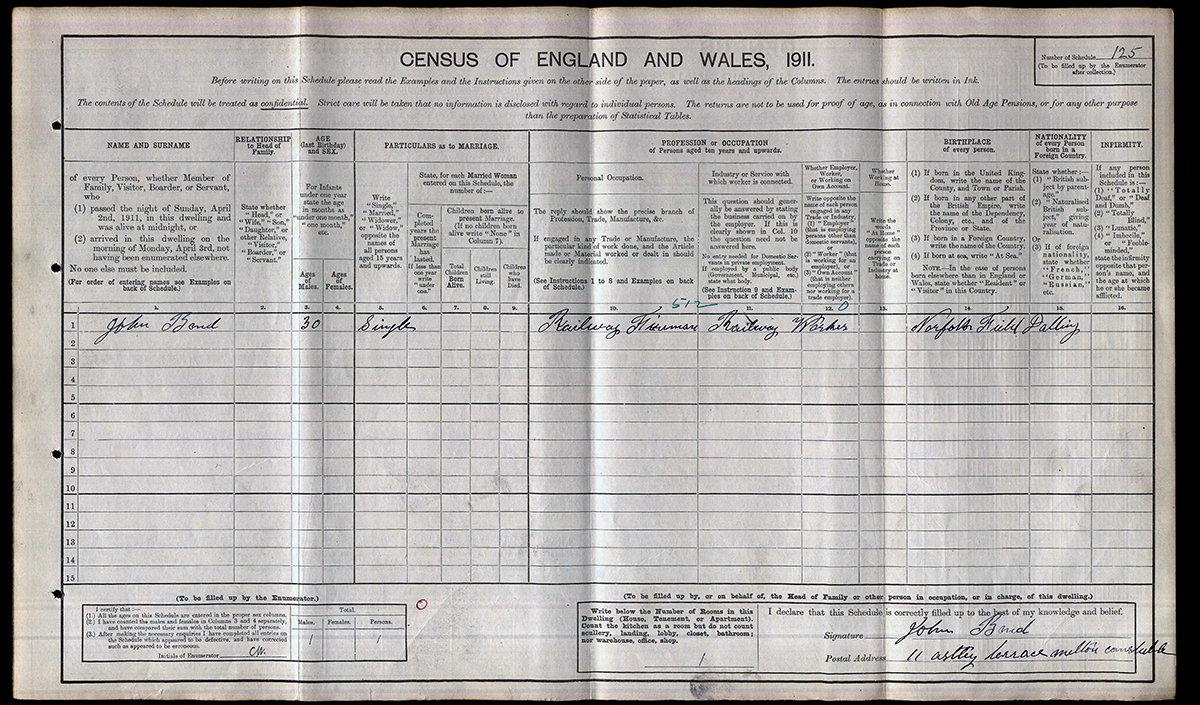 CENSUS OF ENGLAND AND WALES, 1911.
Number of Schedule 125
(To be filled up by the Enumerator
after collection.)
Before writing on this Schedule please read the Examples and the Instructions given on the other side of the paper, as well as the headings of the Columns. The entries should be written in Ink.
The contents of the Schedule will be treated as confidential. Strict care will be taken that no information is disclosed with regard to individual persons. The returns are not to be used for proof of age, as in connection with Old Age Pensions, or for any other purpose
than the preparation of Statistical Tables.
NAME AND SURNAME
of every Person, whether Member of
Family, Visitor, Boarder, or Servant,
who
(1) passed the night of Sunday, April
2nd, 1911, in this dwelling and
was alive at midnight, or
(2) arrived in this dwelling on the
morning of Monday, April 3rd, not
having been enumerated elsewhere.
No one else must be included.
(For order of entering names see Examples on
back of Schedule.)
RELATIONSHIP
to Head of
Family.
State whether
"Head," or
"Wife," "Son,"
"Daughter," or
other Relative,
"Visitor,"
"Boarder," or
"Servant."
AGE
(last Birthday)
and SEX.
For Infants
under one year
state the age
in months as
"under one month,"
"one month,"
etc.
Ages
of
Males.
Ages
of
Females.
PARTICULARS as to MARRIAGE.
Write
"Single,"
"Married,"
"Widower,"
or "Widow,"
opposite the
names of
all persons
aged 15 years
and upwards.
State, for each Married Woman
entered on this Schedule, the
number of :—
Com-
pleted
years the
present
Marriage
has
lasted.
If less than
one year
write
"under
one."
Children born alive to
present Marriage.
(If no children born
alive write "None" in
Column 7).
Total
Children
Born
Alive.
Children
still
Living.
Children
who
have
Died.
PROFESSION or OCCUPATION
of Persons aged ten years and upwards.
Personal Occupation.
The reply should show the precise branch of
Profession, Trade, Manufacture, &c.
If engaged in any Trade or Manufacture, the
particular kind of work done, and the Article
made or Material worked or dealt in should
be clearly indicated.
(See Instructions 1 to 8 and Examples on back
of Schedule.)
Industry or Service with
which worker is connected.
This question should gener-
ally be answered by stating
the business carried on by
the employer. If this is
clearly shown in Col. 10
the question need not be
answered here.
No entry needed for Domestic Ser-
vants in private employment.
If employed by a public body
(Government, Municipal, etc.)
state what body.
(See Instruction 9 and Exam-
ples on back of Schedule.)
Whether Employer,
Worker,
or Working on
Own Account.
Write opposite the
name of each person
engaged in any
Trade or Industry,
(1) "Employer"
(that is employing
persons other than
domestic servants),
or
(2) "Worker" (that
is working for an
employer), or
(3) "Own Account"
(that is neither
employing others
nor working for a
trade employer).
Whether
Working at
Home.
Write the
words
"At Home"
opposite the
name of each
person
carrying on
Trade or
Industry at
home.
BIRTHPLACE
of every person.
(1) If born in the United King-
dom, write the name of the
County, and Town or Parish.
(2) If born in any other part of
the British Empire, write
the name of the Dependency,
Colony, etc., and of the
Province or State.
(3) If born in a Foreign Country,
write the name of the Country.
(4) If born at sea, write "At Sea."
NOTE.—In the case of persons
born elsewhere than in England or
Wales, state whether "Resident" or
"Visitor" in this Country.
NATIONALITY
of every Person
born in a
Foreign Country.
State whether :—
(1) "British sub-
ject by parent-
age,"
(2) "Naturalised
British sub-
ject," giving
year of natu-
ralisation.
Or
(3) If of foreign
nationality,
state whether
"French,"
"German,"
"Russian,"
etc.
INFIRMITY.
If any person
included in this
Schedule is :—
(1) "Totally
Deaf," or "Deaf
and Dumb,"
(2) "Totally
Blind,"
(3) "Lunatic,"
(4) "Imbecile,"
or "Feeble-
minded,"
state the infirmity
opposite that per-
son's name, and
the age at which
he or she became
afflicted.
512
0
1. 2. 3. 4. 5. 6. 7. 8. 9. 10. 11. 12. 13. 14. 15. 16.
1 John Bond 30 Single Railway Fireman Railway Worker Norfolk Field Dalling
2
3
4
5
6
7
8
9
10
11
12
13
14
15
(To be filled up by the Enumerator.)
I certify that :—
(1.) All the ages on this Schedule are entered in the proper sex columns.
(2.) I have counted the males and females in Columns 3 and 4 separately,
and have compared their sum with the total number of persons.
(3.) After making the necessary enquiries I have completed all entries on
the Schedule which appeared to be defective, and have corrected
such as appeared to be erroneous.
Initials of Enumerator
Total.
Males. Females. Persons.
1 1
(To be filled up by, or on behalf of, the Head of Family or other person in occupation, or in charge, of this dwelling.)
Write below the Number of Rooms in this
Dwelling (House, Tenement, or Apartment).
Count the kitchen as a room but do not count
scullery, landing, lobby, closet, bathroom;
nor warehouse, office, shop.
1
I declare that this Schedule is correctly filled up to the best of my knowledge and belief.
Signature John Bond
Postal Address 11 astley terrace melton constable